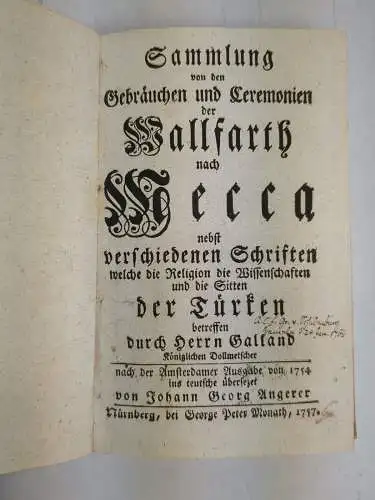 Sammlung
von den
Gebräuchen und Ceremonien
der
Wallfarth
nach
Mecca
nebst
verschiedenen Schriften
welche die Religion die Wissenschaften
und die Sitten
der Türken
betreffen
durch Herrn Galland
Königlichen Dollmetscher
nach der Amsterdamer Ausgabe von 1754
ins teutsche übersezet
von Johann Georg Angerer
Nürnberg, bei George Peter Monath, 1757.